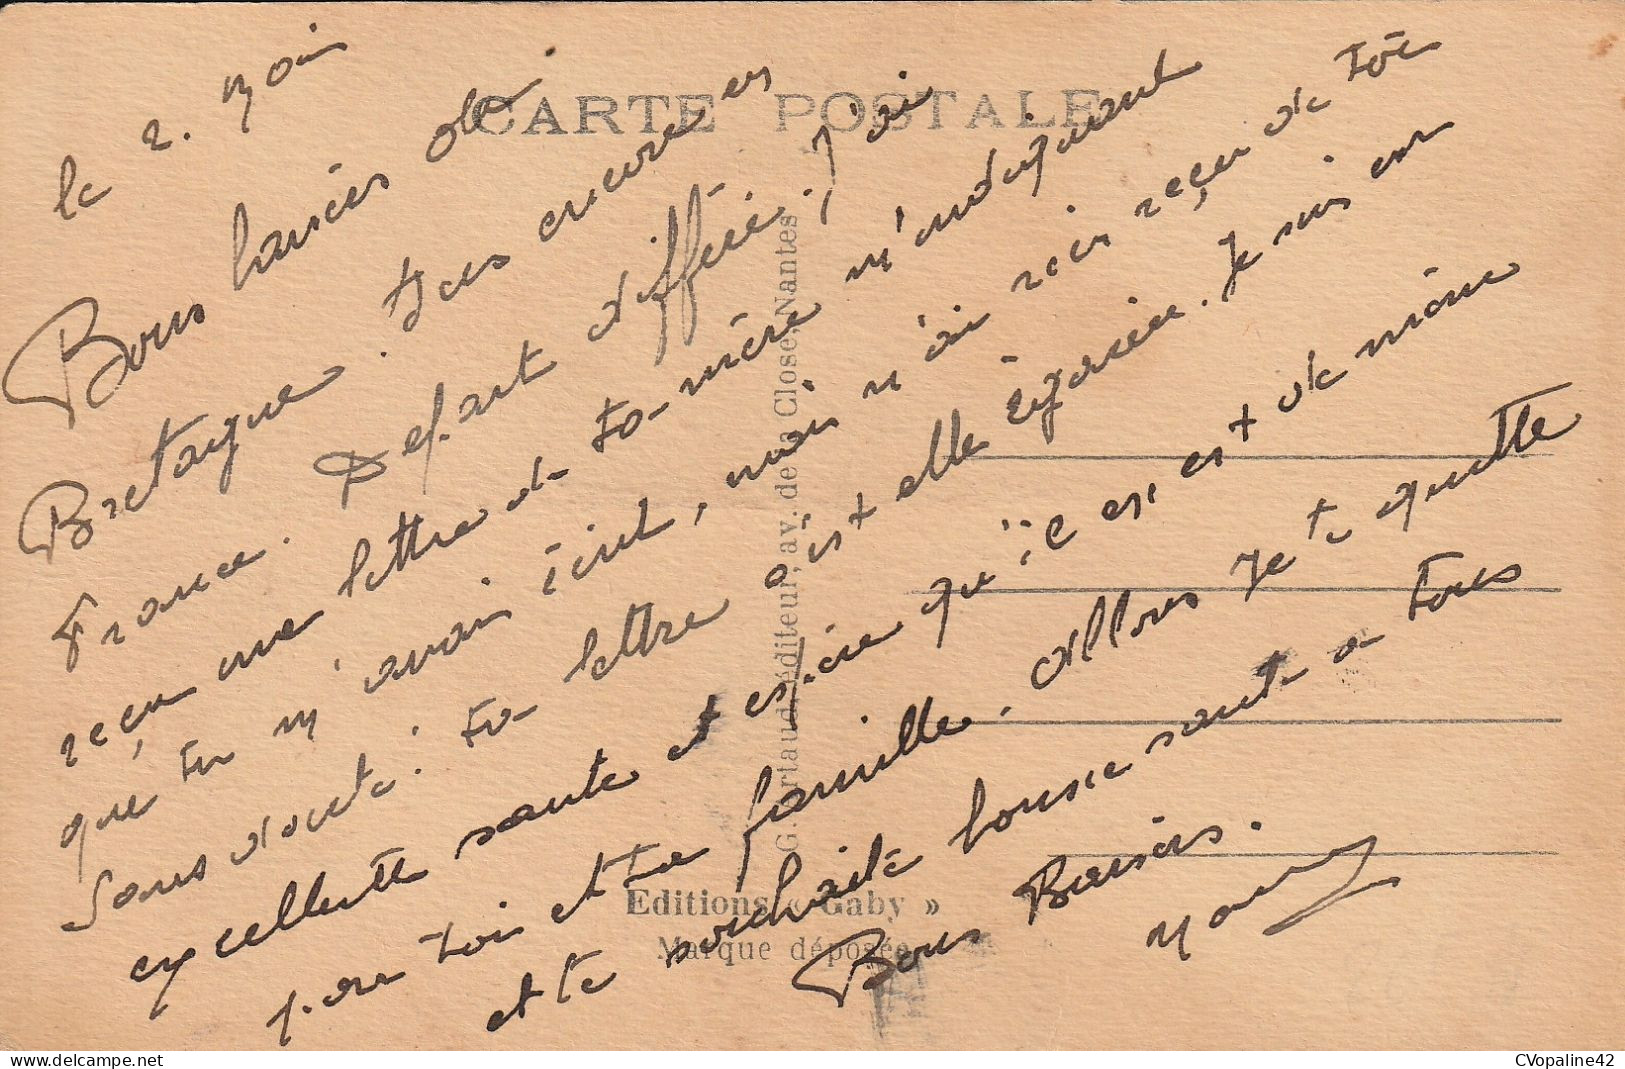 CARTE POSTALE
le 2. Mai
Bons baisers de
Bretagne. Pas encore en
France. Départ différé. J'ai
reçu une lettre de ta mère m'indiquant
que tu m'avais écrit, mais n'ai rien reçu de toi
sans doute. ta lettre s'est elle égarée. Je suis en
excellente santé et espère qu'il en est de même
pour toi et ta famille. Allons je te quitte
et te souhaite bonne santé à tous
Bons Baisers.
G. Artaud, éditeur, av. de la Close, Nantes
Editions « Gaby »
Marque déposée
CVopaline42